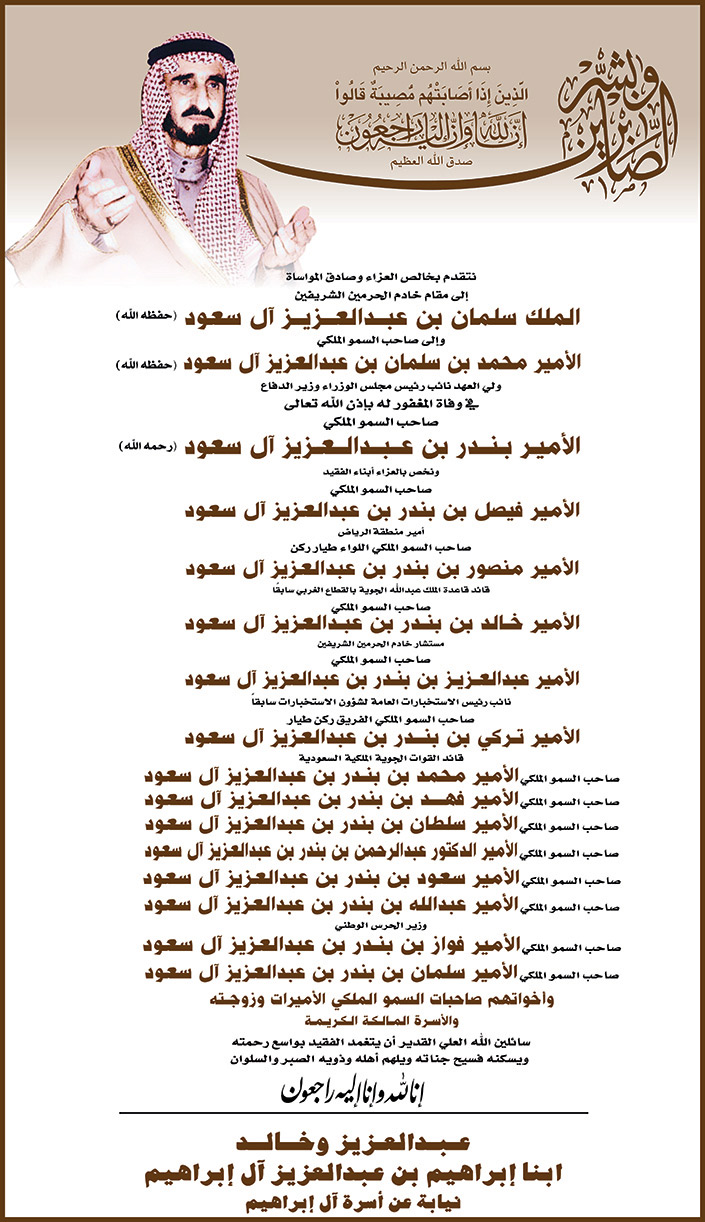 وبشر الصابرين
بسم الله الرحمن الرحيم
الَّذِينَ إِذَا أَصَابَتْهُم مُّصِيبَةٌ قَالُواْ
إِنَّا لِلَّهِ وَإِنَّا إِلَيْهِ رَاجِعُونَ
صدق الله العظيم
نتقدم بخالص العزاء وصادق المواساة
إلى مقام خادم الحرمين الشريفين
الملك سلمان بن عبدالعزيز آل سعود (حفظه الله)
وإلى صاحب السمو الملكي
الأمير محمد بن سلمان بن عبدالعزيز آل سعود (حفظه الله)
ولي العهد نائب رئيس مجلس الوزراء وزير الدفاع
في وفاة المغفور له بإذن الله تعالى
صاحب السمو الملكي
الأمير بندر بن عبدالعزيز آل سعود (رحمه الله)
ونخص بالعزاء أبناء الفقيد
صاحب السمو الملكي
الأمير فيصل بن بندر بن عبدالعزيز آل سعود
أمير منطقة الرياض
صاحب السمو الملكي اللواء طيار ركن
الأمير منصور بن بندر بن عبدالعزيز آل سعود
قائد قاعدة الملك عبدالله الجوية بالقطاع الغربي سابقا
صاحب السمو الملكي
الأمير خالد بن بندر بن عبدالعزيز آل سعود
مستشار خادم الحرمين الشريفين
صاحب السمو الملكي
الأمير عبدالعزيز بن بندر بن عبدالعزيز آل سعود
نائب رئيس الاستخبارات العامة لشؤون الاستخبارات سابقاً
صاحب السمو الملكي الفريق ركن طيار
الأمير تركي بن بندر بن عبدالعزيز آل سعود
قائد القوات الجوية الملكية السعودية
صاحب السمو الملكي الأمير محمد بن بندر بن عبدالعزيز آل سعود
صاحب السمو الملكي الأمير فهد بن بندر بن عبدالعزيز آل سعود
صاحب السمو الملكي الأمير سلطان بن بندر بن عبدالعزيز آل سعود
صاحب السمو الملكي الأمير الدكتور عبدالرحمن بن بندر بن عبدالعزيز آل سعود
صاحب السمو الملكي الأمير سعود بن بندر بن عبدالعزيز آل سعود
صاحب السمو الملكي الأمير عبدالله بن بندر بن عبدالعزيز آل سعود
وزير الحرس الوطني
صاحب السمو الملكي الأمير فواز بن بندر بن عبدالعزيز آل سعود
صاحب السمو الملكي الأمير سلمان بن بندر بن عبدالعزيز آل سعود
وأخواتهم صاحبات السمو الملكي الأميرات وزوجته
والأسرة المالكة الكريمة
سائلين الله العلي القدير أن يتغمد الفقيد بواسع رحمته
ويسكنه فسيح جناته ويلهم أهله وذويه الصبر والسلوان
إنا لله وإنا إليه راجعون
عبدالعزيز وخالد
ابنا إبراهيم بن عبدالعزيز آل إبراهيم
نيابة عن أسرة آل إبراهيم